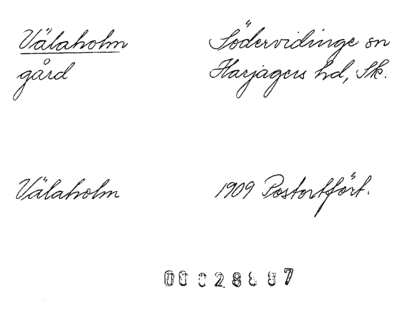 Välaholm Södervidinge sn
gård Harjagers hd, Sk.
Välaholm 1909 Postortfört.
00028887